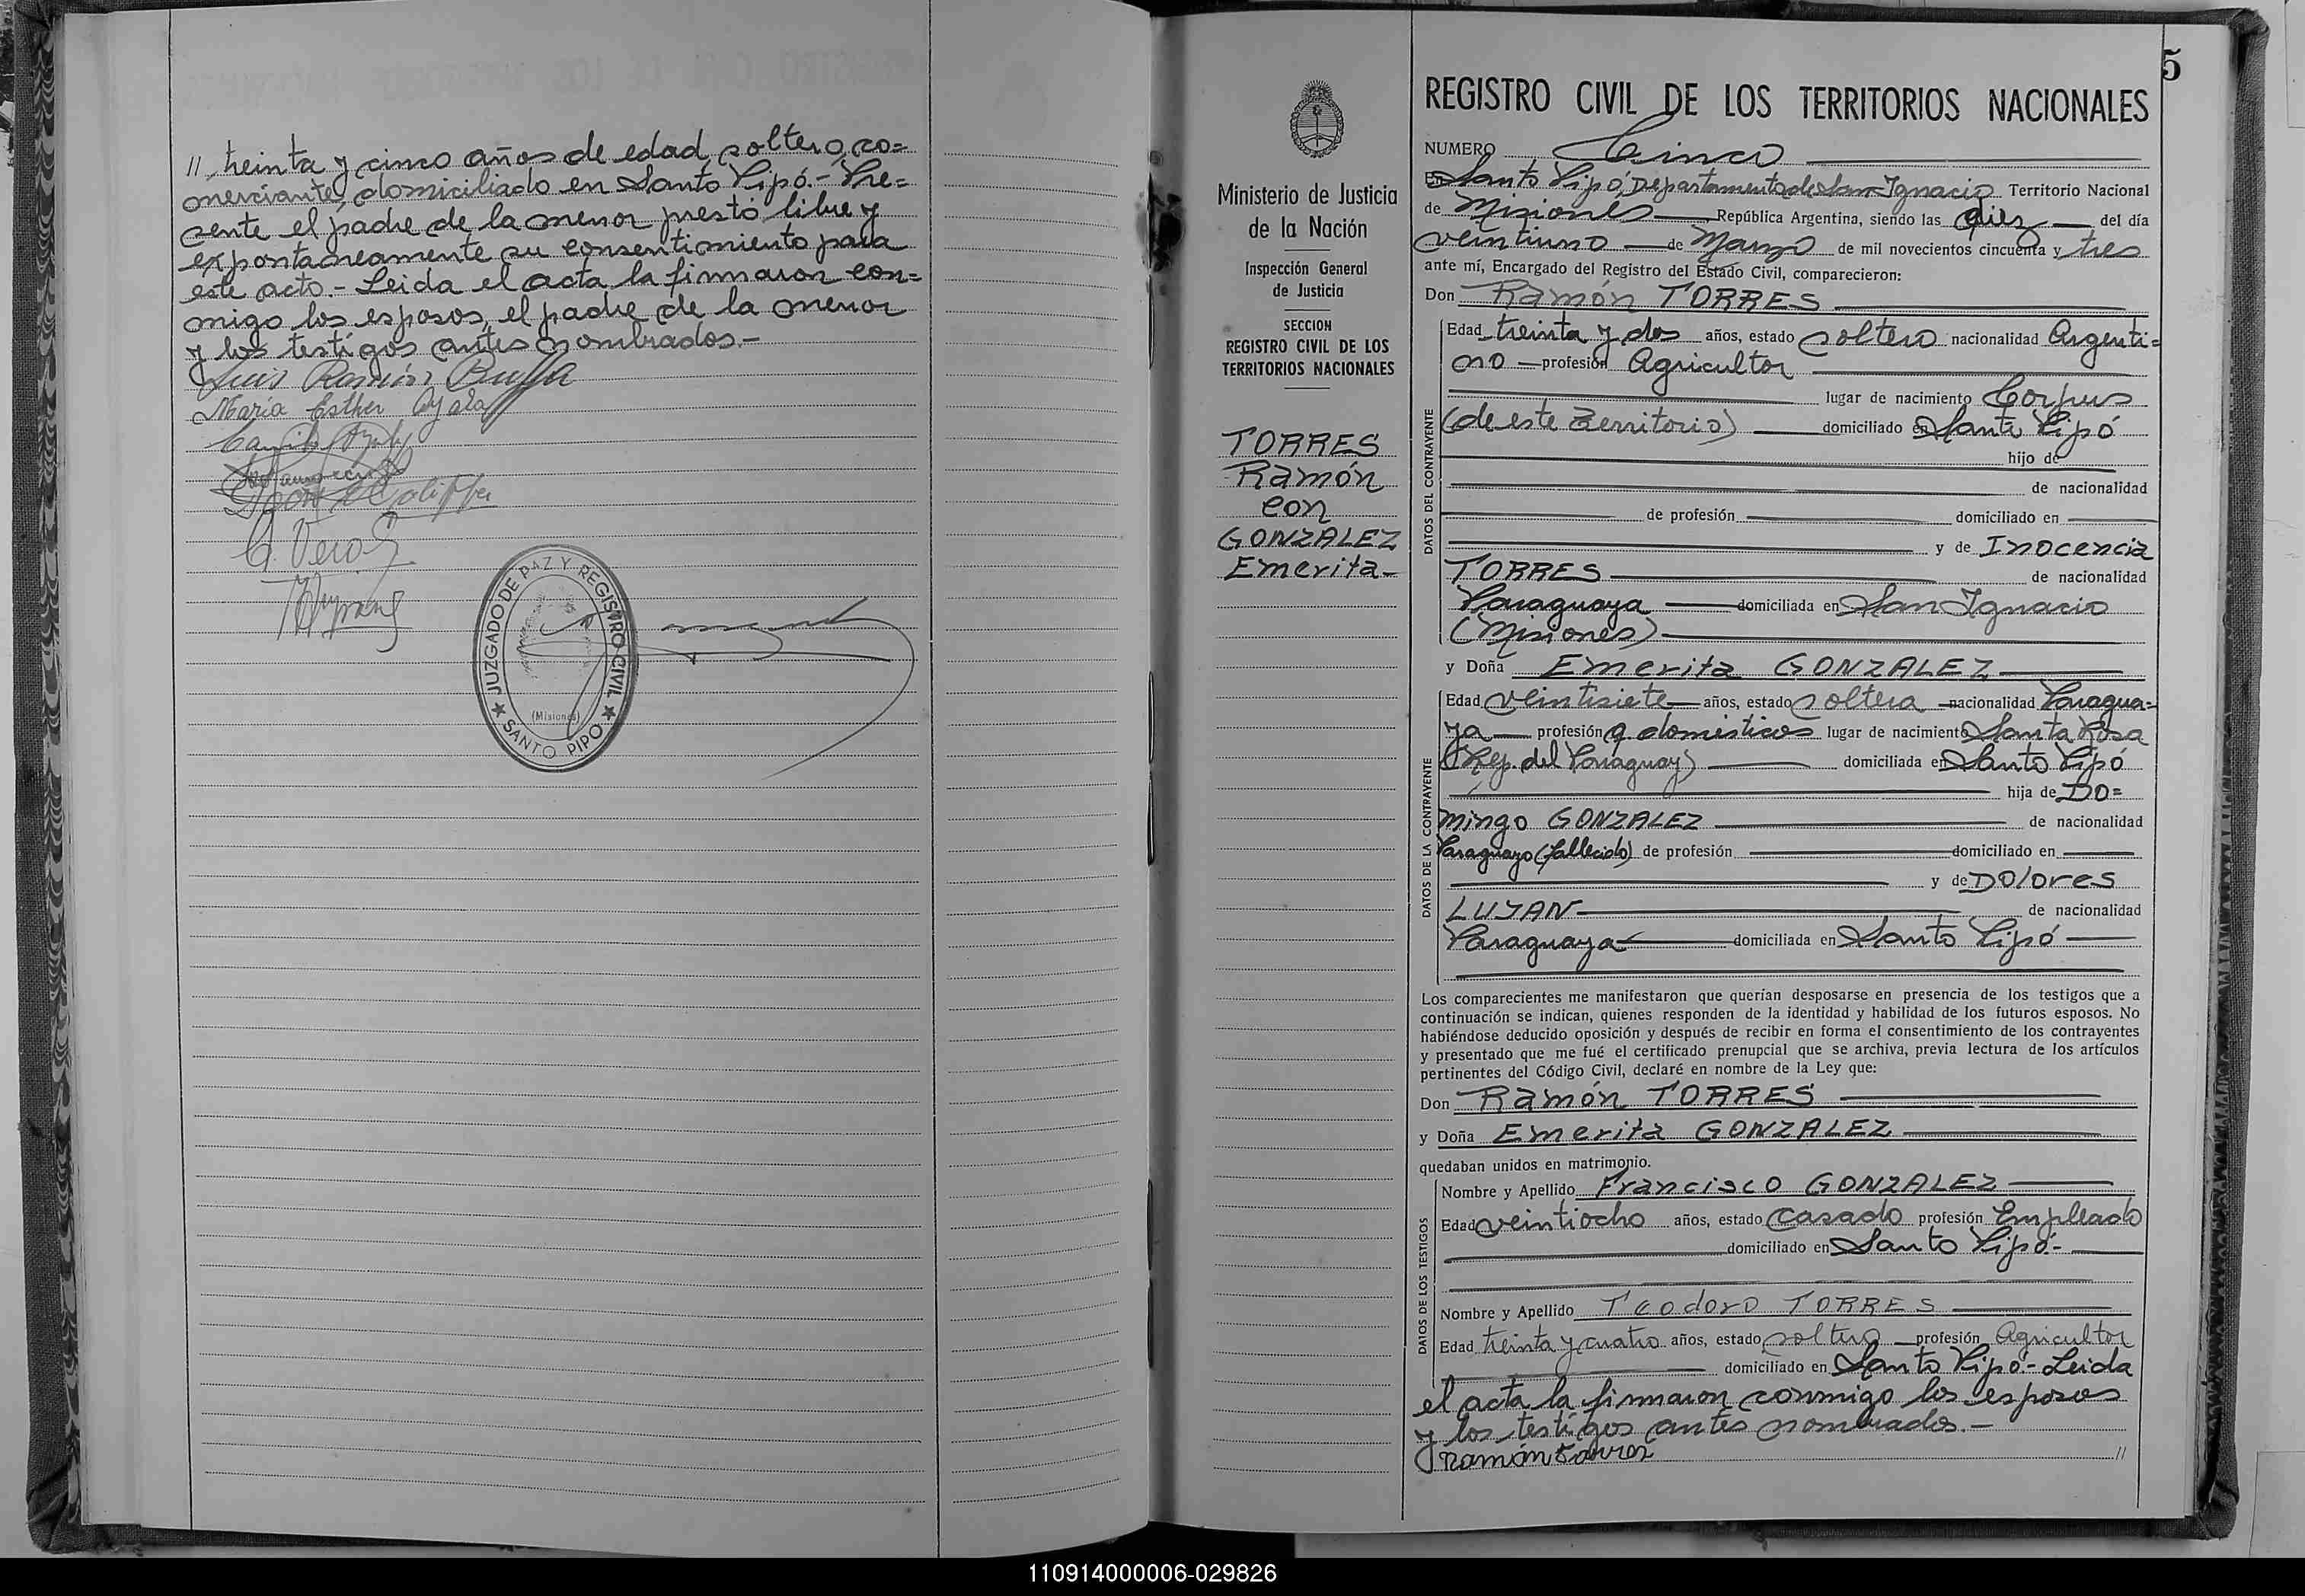 // treinta y cinco años de edad, soltero, co=
merciante, domiciliado en Santo Pipó.- Pre=
sente el padre de la menor prestó libre y
expontaneamente su consentimiento para
este acto.- Leida el acta la firmaron con=
migo los esposos, el padre de la menor
y los testigos antes nombrados.-
Luis Ramón Bulla
María Esther Ayala
JUZGADO DE PAZ Y REGISTRO CIVIL
(Misiones)
★ SANTO PIPO ★
5
Ministerio de Justicia
de la Nación
Inspección General
de Justicia
SECCION
REGISTRO CIVIL DE LOS
TERRITORIOS NACIONALES
TORRES
Ramón
con
GONZALEZ
Emerita-
REGISTRO CIVIL DE LOS TERRITORIOS NACIONALES
NUMERO Cinco
En Santo Pipó, Departamento de San Ignacio Territorio Nacional
de Misiones República Argentina, siendo las diez del día
veintiuno de Marzo de mil novecientos cincuenta y tres
ante mí, Encargado del Registro del Estado Civil, comparecieron:
Don Ramón TORRES
DATOS DEL CONTRAYENTE
Edad treinta y dos años, estado soltero nacionalidad Argenti=
no profesión Agricultor
lugar de nacimiento Corpus
(de este Territorio) domiciliado en Santo Pipó
hijo de
de nacionalidad
de profesión domiciliado en
y de Inocencia
TORRES de nacionalidad
Paraguaya domiciliada en San Ignacio
(Misiones)
y Doña Emerita GONZALEZ
DATOS DE LA CONTRAYENTE
Edad veintisiete años, estado soltera nacionalidad Paragua=
ya profesión q. domésticos lugar de nacimiento Santa Rosa
(Rep. del Paraguay) domiciliada en Santo Pipó
hija de DO=
mingo GONZALEZ de nacionalidad
Paraguayo (fallecido) de profesión domiciliado en
y de DOlores
LUJAN de nacionalidad
Paraguaya domiciliada en Santo Pipó
Los comparecientes me manifestaron que querían desposarse en presencia de los testigos que a
continuación se indican, quienes responden de la identidad y habilidad de los futuros esposos. No
habiéndose deducido oposición y después de recibir en forma el consentimiento de los contrayentes
y presentado que me fué el certificado prenupcial que se archiva, previa lectura de los artículos
pertinentes del Código Civil, declaré en nombre de la Ley que:
Don Ramón TORRES
y Doña Emerita GONZALEZ
quedaban unidos en matrimonio.
DATOS DE LOS TESTIGOS
Nombre y Apellido Francisco GONZALEZ
Edad veintiocho años, estado casado profesión Empleado
domiciliado en Santo Pipó.-
Nombre y Apellido Teodoro TORRES
Edad treinta y cuatro años, estado soltero profesión Agricultor
domiciliado en Santo Pipó.- Leida
el acta la firmaron conmigo los esposos
y los testigos antes nombrados.-
Ramón torres //
110914000006-029826